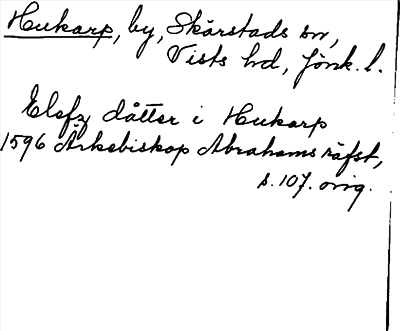 Hukarp, by, Skärstads sn,
Vists hd, Jönk. l.
Elsfz dåtter i Hukarp
1596 Ärkebiskop Abrahams räfst,
s. 107. orig.